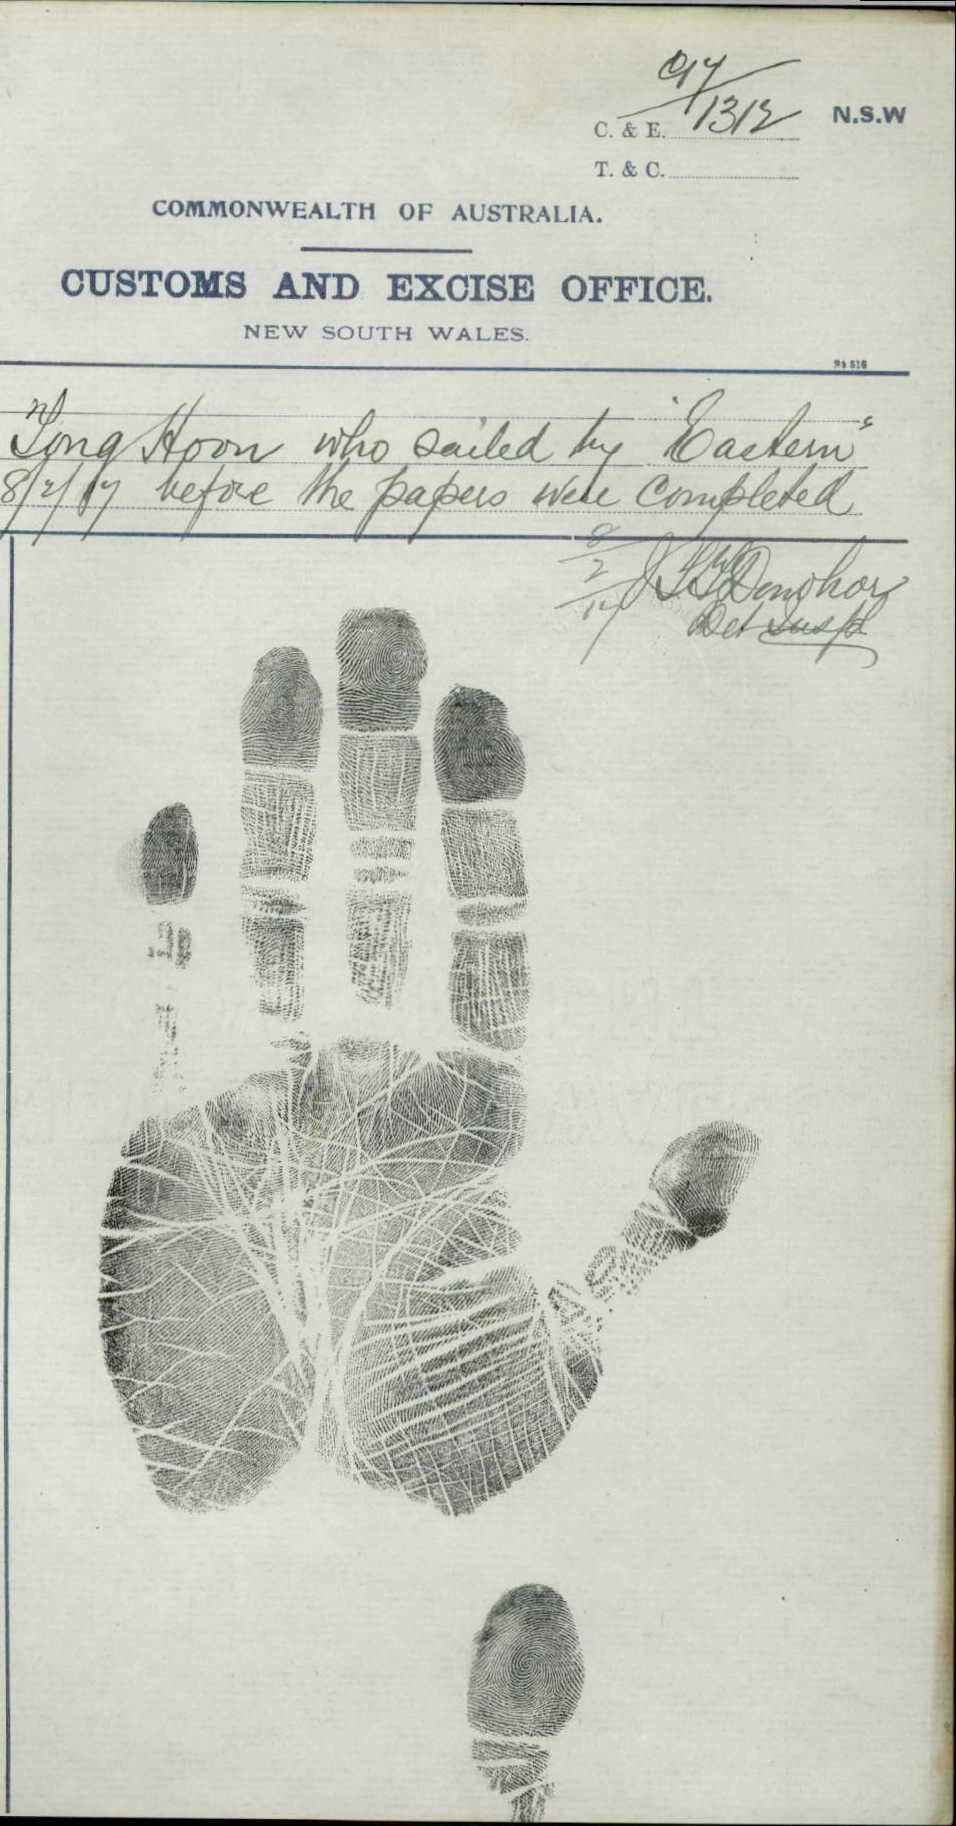 C17/1312
N.S.W
C. & E.
T. & C.
COMMONWEALTH OF AUSTRALIA.
CUSTOMS AND EXCISE OFFICE.
NEW SOUTH WALES.
Hoon who sailed by "Eastern"
8/2/17 before the papers were completed
8/2/17
Donohoe
Det Insp